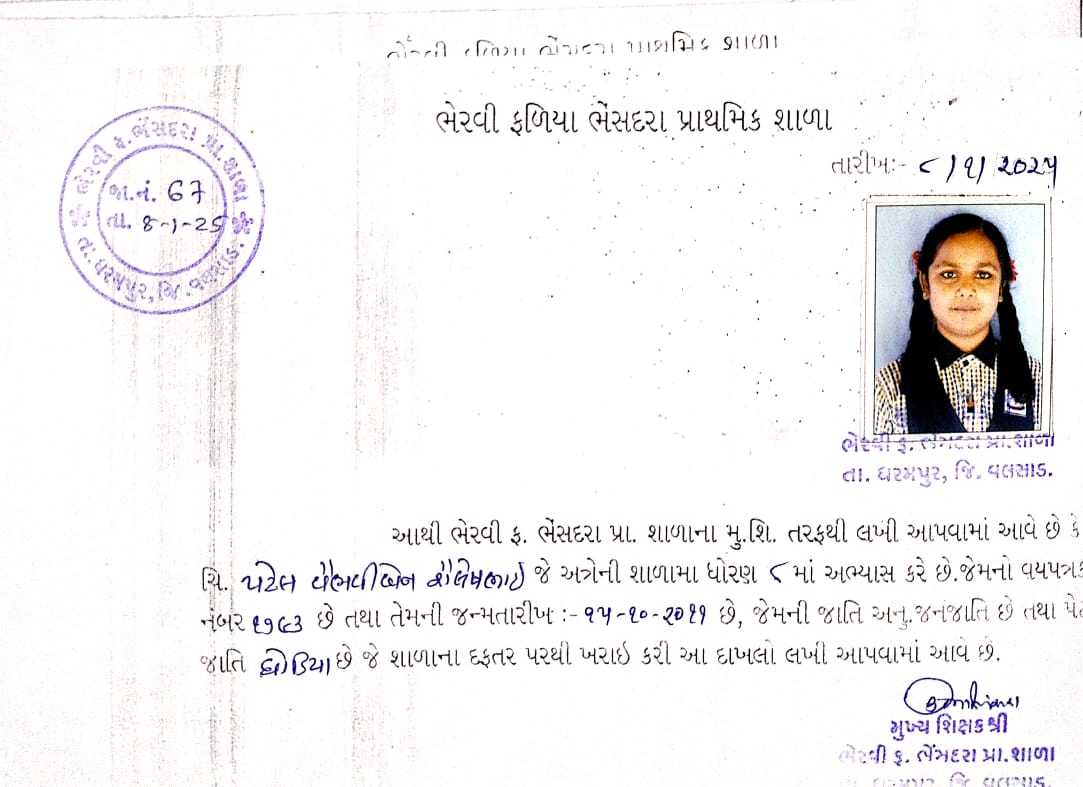 પ્રાથમિક શાળા
ભેરવી ફળિયા ભેંસદરા પ્રાથમિક શાળા
તારીખઃ- ૮/૧/૨૦૨૫
ભેરવી ફ. ભેંસદરા પ્રા. શાળા
જા.નં. 67
તા. 8-1-25
તા. ધરમપુર, જિ. વલસાડ.
ભેરવી ફ. ભેંસદરા પ્રા.શાળા
તા. ધરમપુર, જિ. વલસાડ.
આથી ભેરવી ફ. ભેંસદરા પ્રા. શાળાના મુ.શિ. તરફથી લખી આપવામાં આવે છે કે
ચિ. પટેલ વૈભવીબેન શૈલેષભાઈ જે અત્રેની શાળામા ધોરણ ૮ માં અભ્યાસ કરે છે.જેમનો વયપત્રક
નંબર ૧૭૯૩ છે તથા તેમની જન્મતારીખ :- ૧૫-૧૦-૨૦૧૧ છે, જેમની જાતિ અનુ.જનજાતિ છે તથા પેટ
જાતિ ધોડિયા છે જે શાળાના દફતર પરથી ખરાઇ કરી આ દાખલો લખી આપવામાં આવે છે.
મુખ્ય શિક્ષકશ્રી
ભેરવી ફ. ભેંસદરા પ્રા.શાળા
તા. ધરમપુર, જિ. વલસાડ.